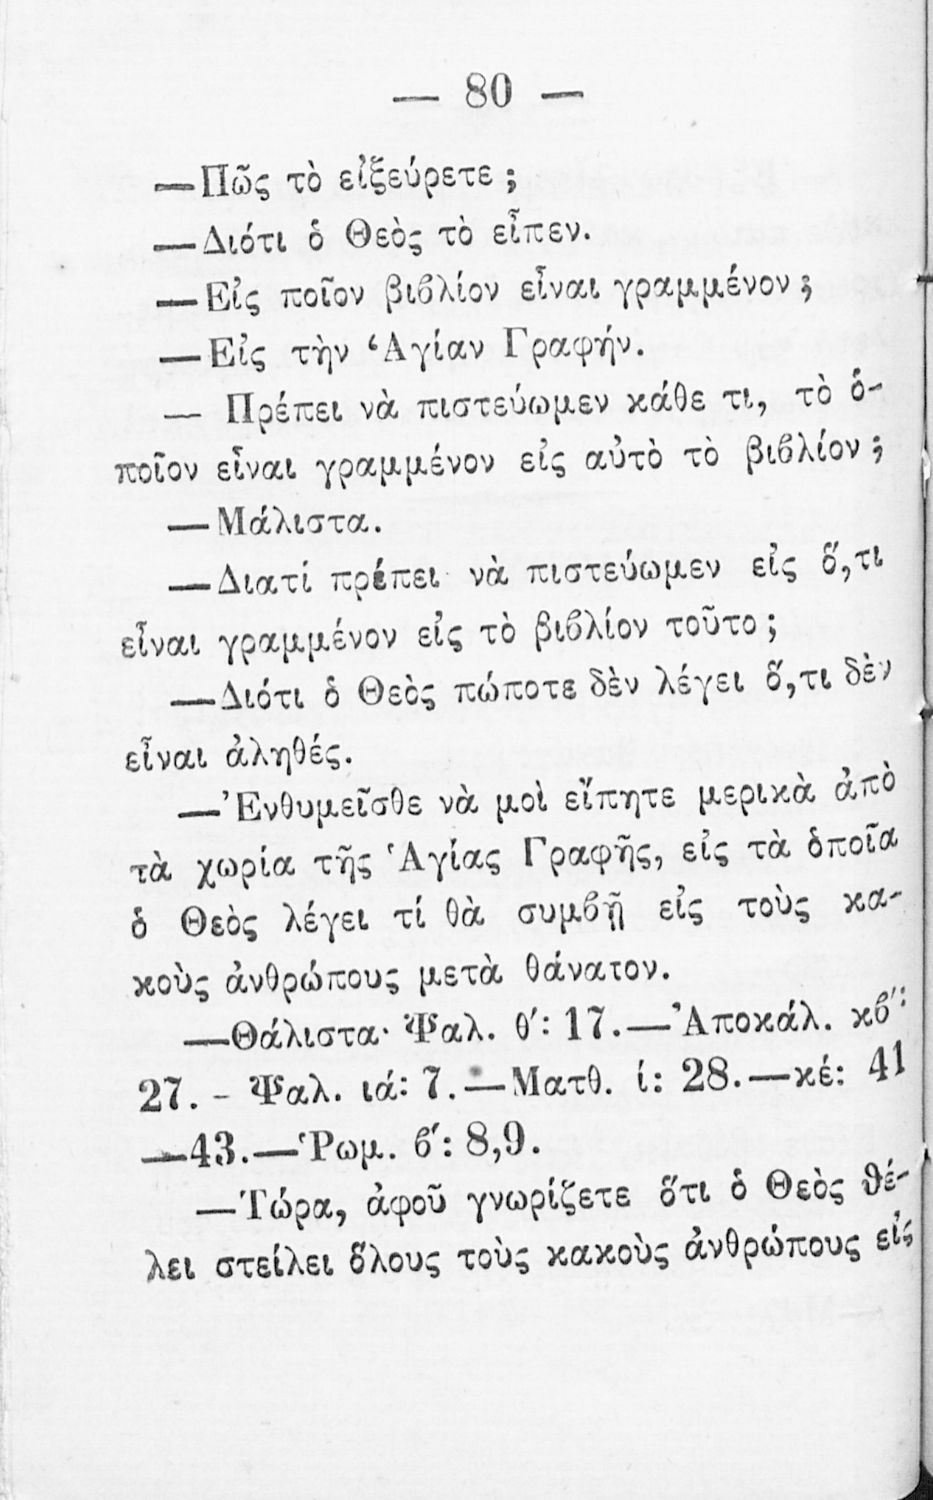 — 80 —
—Πῶς τὸ εἰξεύρετε ;
—Διότι ὁ Θεὸς τὸ εἶπεν.
—Εἰς ποῖον βιϐλίον εἶναι γραμμένον ;
—Εἰς τὴν ‘Αγίαν Γραφήν.
— Πρέπει νὰ πιστεύωμεν κάθε τι, τὸ ὁ-
ποῖον εἶναι γραμμένον εἰς αὐτὸ τὸ βιϐλίον ;
—Μάλιστα.
—Διατί πρέπει νὰ πιστεύωμεν εἰς ὅ,τι
εἶναι γραμμένον εἰς τὸ βιϐλίον τοῦτο ;
—Διότι ὁ Θεὸς πώποτε δὲν λέγει ὅ,τι δὲν
εἶναι ἀληθές.
—Ἐνθυμεῖσθε νὰ μοὶ εἴπητε μερικὰ ἀπὸ
τὰ χωρία τῆς Ἁγίας Γραφῆς, εἰς τὰ ὁποῖα
ὁ Θεὸς λέγει τί θὰ συμϐῇ εἰς τοὺς κα-
κοὺς ἀνθρώπους μετὰ θάνατον.
—Θάλιστα· Ψαλ. θ΄: 17.—Ἀποκάλ. κϐ΄:
27. - Ψαλ. ιά: 7.—Ματθ. ί: 28.—κέ: 41
—43.—Ῥωμ. ϐ΄: 8,9.
—Τώρα, ἀφοῦ γνωρίζετε ὅτι ὁ Θεὸς θέ-
λει στείλει ὅλους τοὺς κακοὺς ἀνθρώπους εἰς